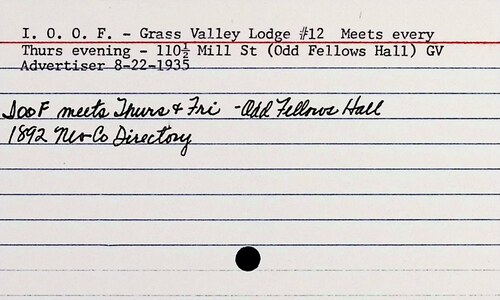 I. O. O. F. - Grass Valley Lodge #12  Meets every
Thurs evening - 110½ Mill St (Odd Fellows Hall) GV
Advertiser 8-22-1935
IOOF meets Thurs & Fri - Odd Fellows Hall
1892 Nev Co Directory